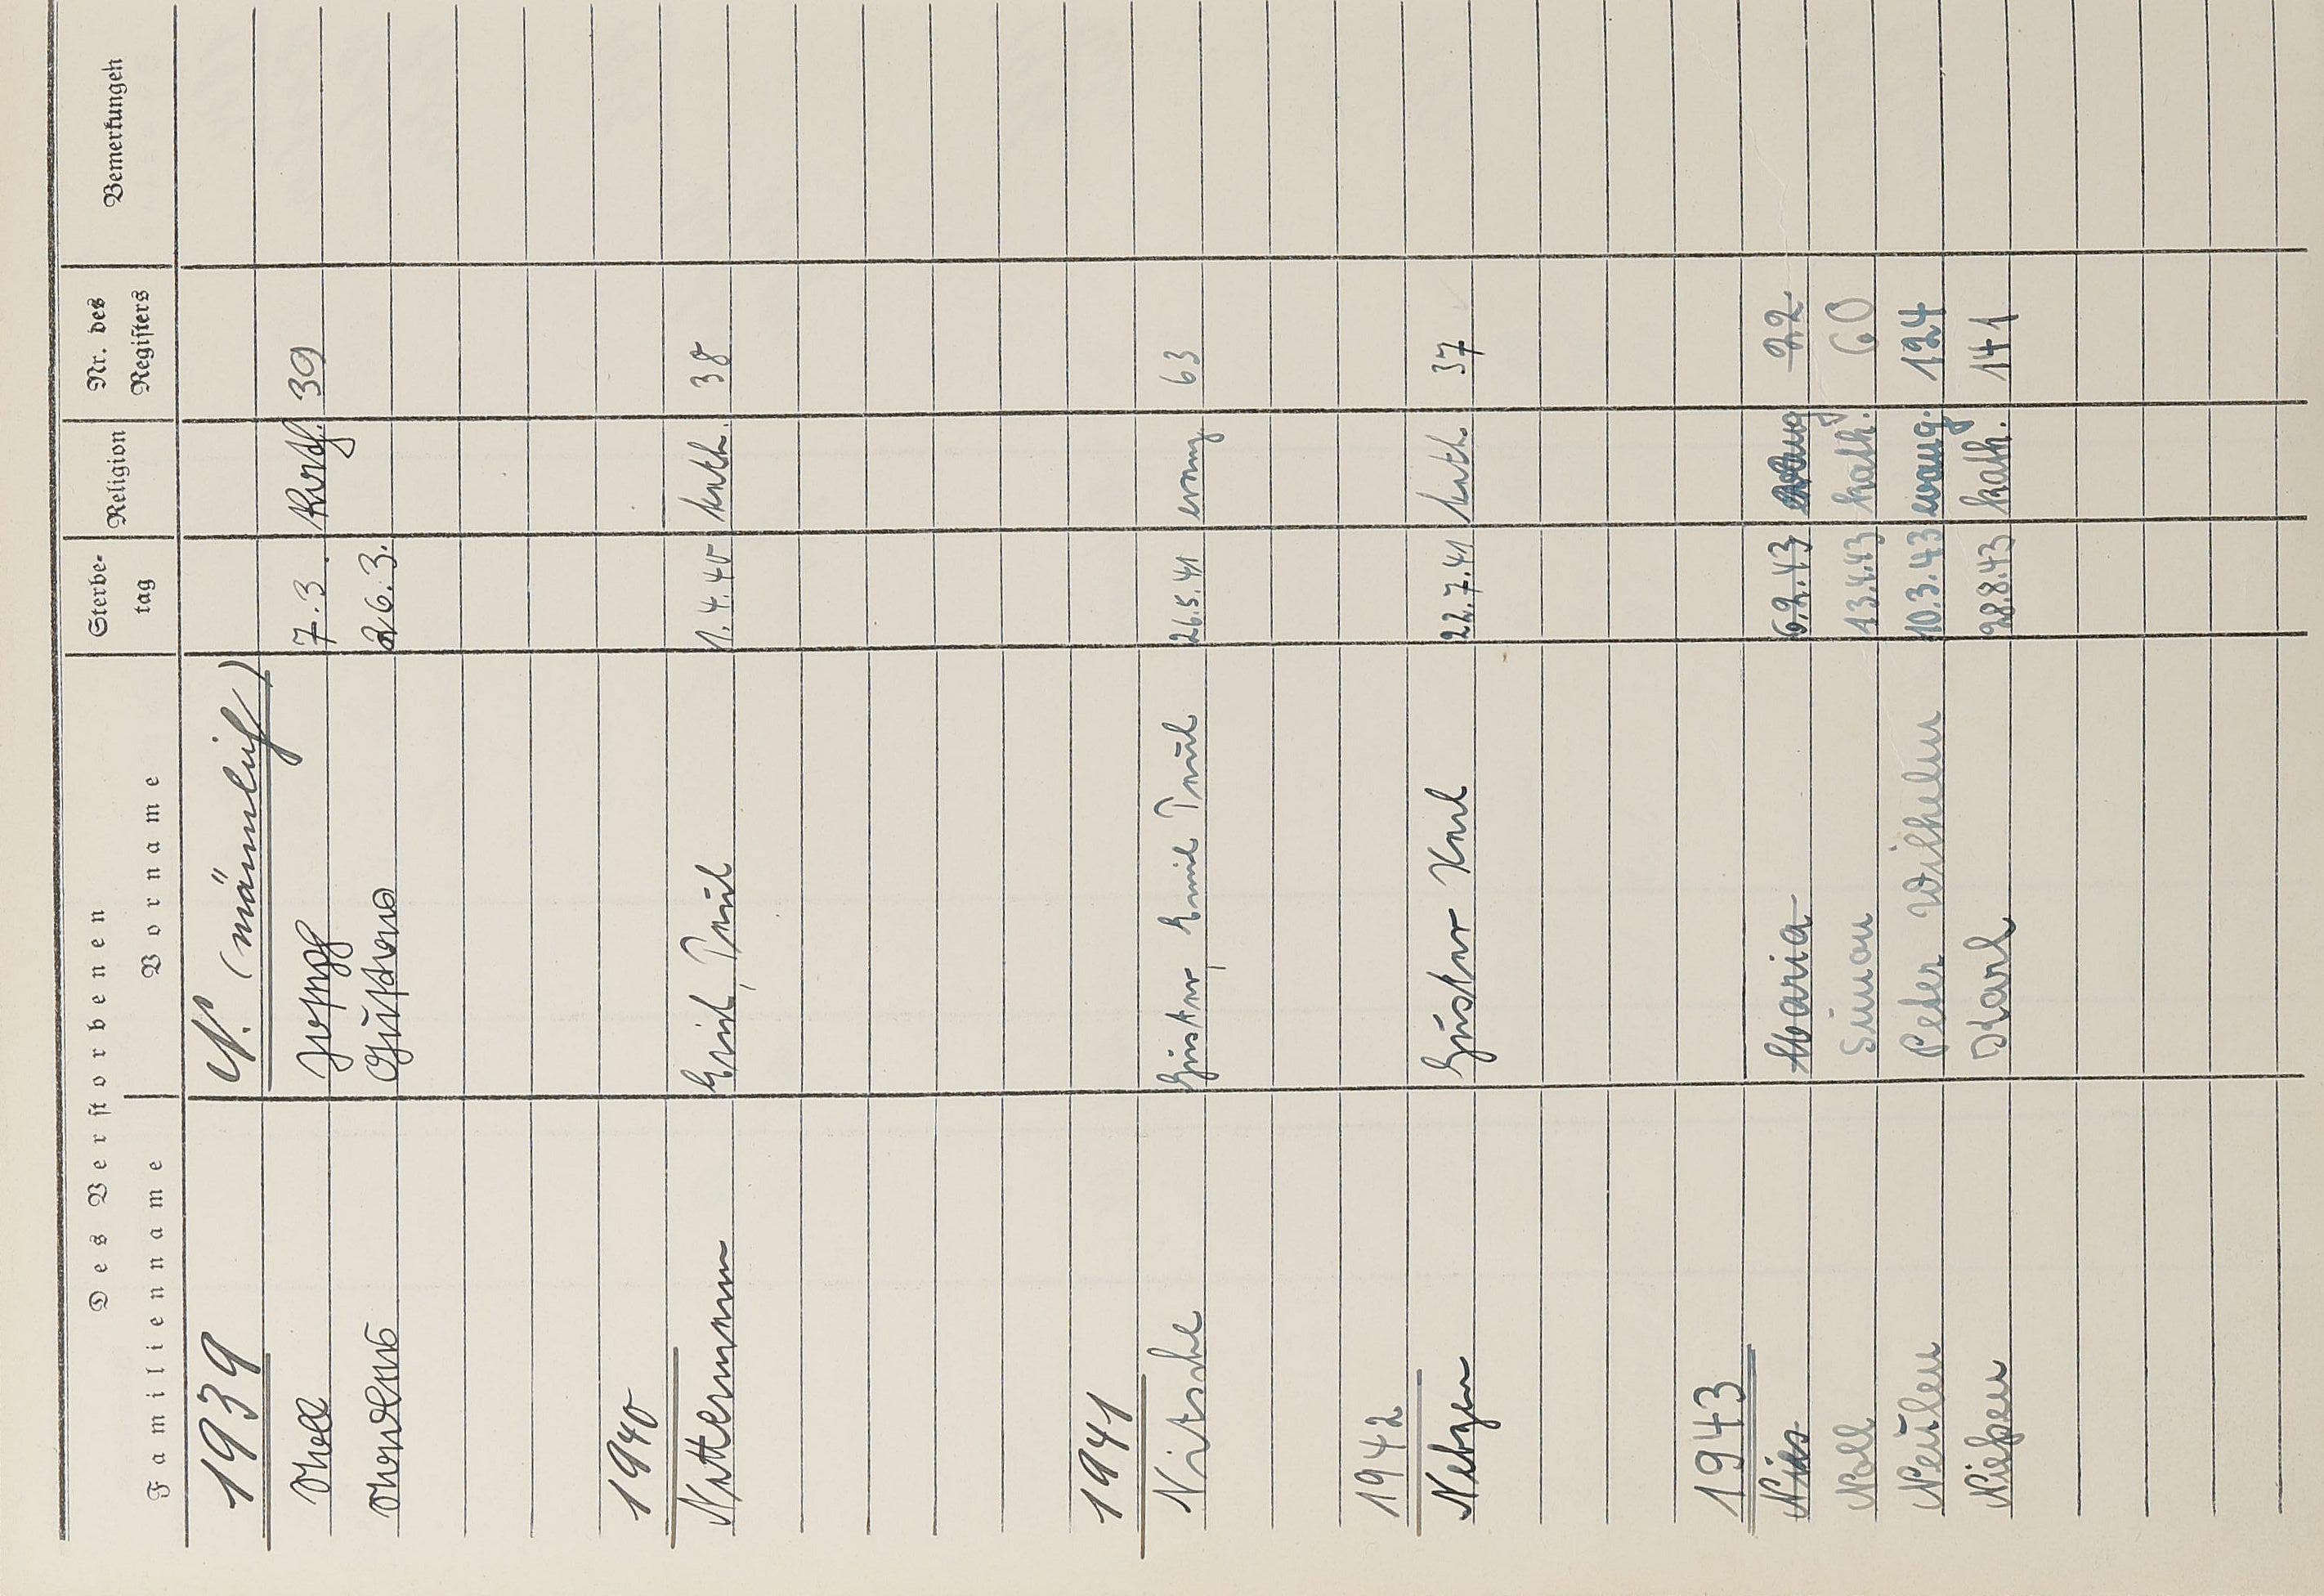 Des Verstorbenen Sterbe- Religion Nr. des Bemerkungen
Familienname Vorname tag Registers
1939 N. (männlich)
Noll Joseph 7.3. Kath. 39
Gustav 26.3.
1940
Nattermann Erich, Paul 1.4.40 kath. 38
1941
Nitsche Gustav, Emil Paul 26.5.41 evang 63
1942
Gustav Karl 22.7.41 kath. 37
1943
Nies Maria 6.2.43 evang 22
Noll Simon 13.4.43 kath. 60
Neulen Peter Wilhelm 10.3.43 evang. 124
Nießen Karl 28.8.43 kath. 141